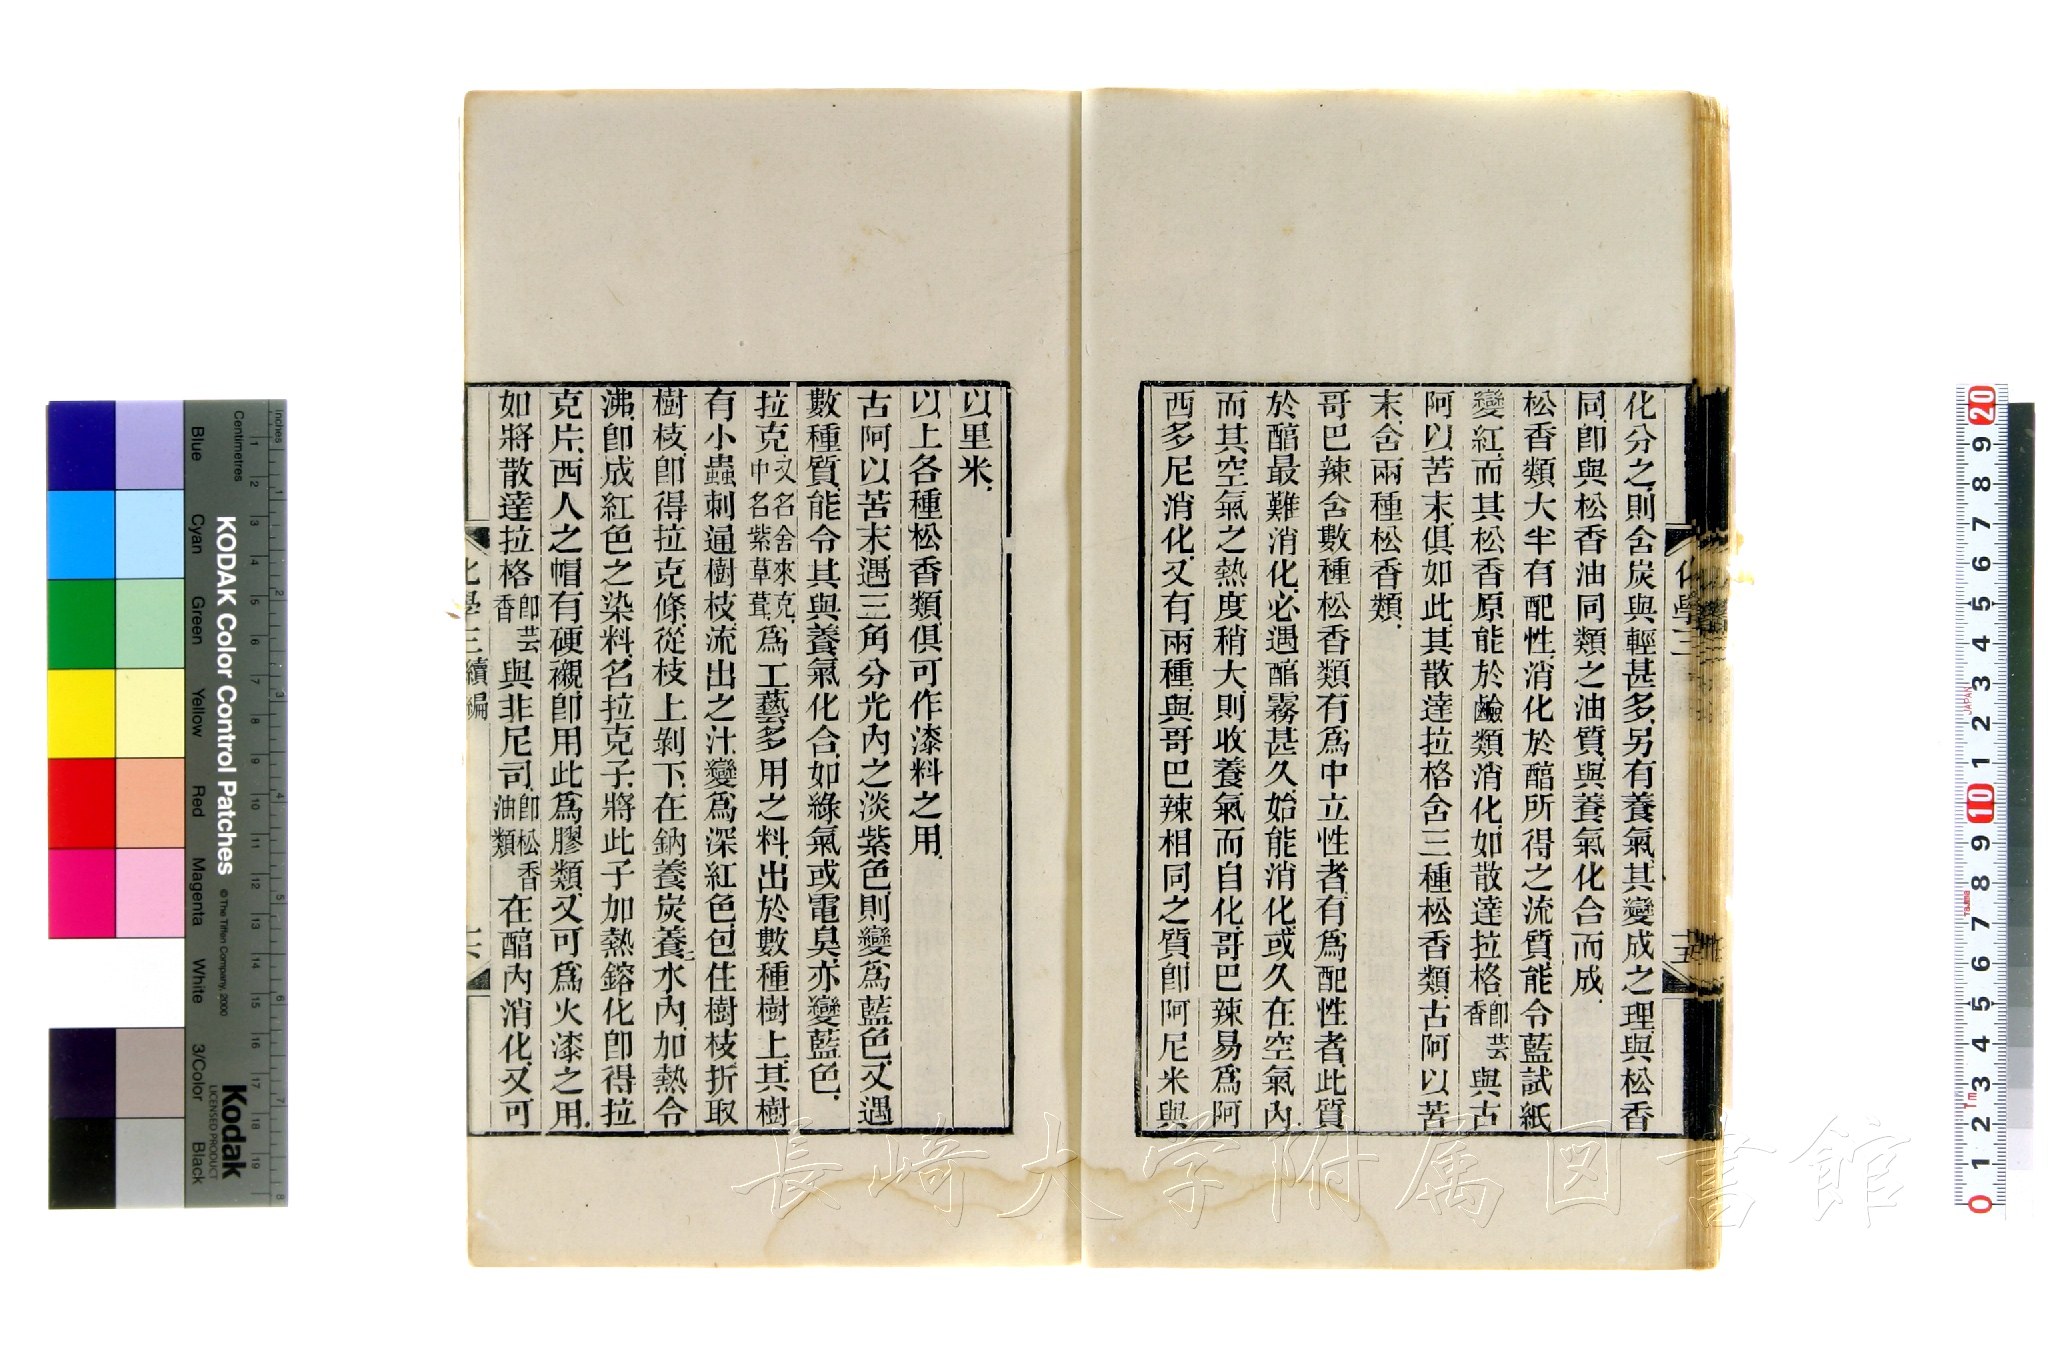 化分之則含炭與輕甚多另有養氣其變成之理與松香
同卽與松香油同類之油質與養氣化合而成
松香類大半有配性消化於醕所得之流質能令藍試紙
變紅而其松香原能於鹼類消化如散達拉格卽芸香與古
阿以苦末俱如此其散達拉格含三種松香類古阿以苦
末含兩種松香類
哥巴辣含數種松香類有爲中立性者有爲配性者此質
於醕最難消化必遇醕霧甚久始能消化或久在空氣內
而其空氣之熱度稍大則收養氣而自化哥巴辣易爲阿
西多尼消化又有兩種與哥巴辣相同之質卽阿尼米與
以里米
以上各種松香類俱可作漆料之用
古阿以苦末遇三角分光內之淡紫色則變爲藍色又遇
數種質能令其與養氣化合如綠氣或電臭亦變藍色
拉克又名舍來克中名紫草茸爲工藝多用之料出於數種樹上其樹
有小蟲刺通樹枝流出之汁變爲深紅色包住樹枝折取
樹枝卽得拉克條從枝上剝下在鈉養炭養二水內加熱令
沸卽成紅色之染料名拉克子將此子加熱鎔化卽得拉
克片西人之帽有硬襯卽用此爲膠類又可爲火漆之用
如將散達拉格卽芸香與非尼司卽松香油類在醕內消化又可
化學三續編
十六
化學三
十五
KODAK Color Control Patches
© The Tiffen Company, 2000
Kodak
LICENSED PRODUCT
Inches
Centimetres
Blue
Cyan
Green
Yellow
Red
Magenta
White
3/Color
Black
1 2 3 4 5 6 7 8
1 2 3 4 5 6 7 8 9 10 11 12 13 14 15 16 17 18 19
0 1 2 3 4 5 6 7 8 9 10 1 2 3 4 5 6 7 8 9 20
JAPAN
Tajima
1m
長崎大学附属図書館